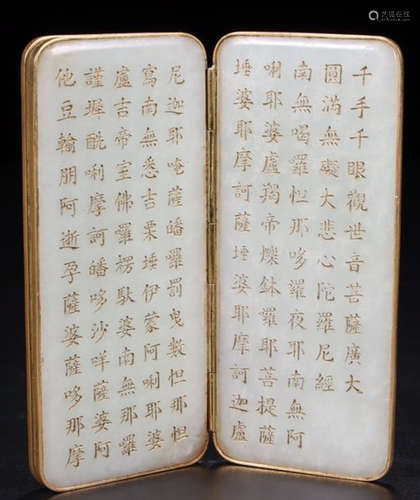 千手千眼觀世音菩薩廣大
圓滿無礙大悲心陀羅尼經
南無喝羅怛那哆羅夜耶南無阿
唎耶婆盧羯帝爍鉢羅耶菩提薩
埵婆耶摩訶薩埵婆耶摩訶迦盧
尼迦耶唵薩皤羅罰曳數怛那怛
寫南無悉吉栗埵伊蒙阿唎耶婆
盧吉帝室佛羅楞馱婆南無那羅
謹墀醯唎摩訶皤哆沙咩薩婆阿
他豆輸朋阿逝孕薩婆薩哆那摩